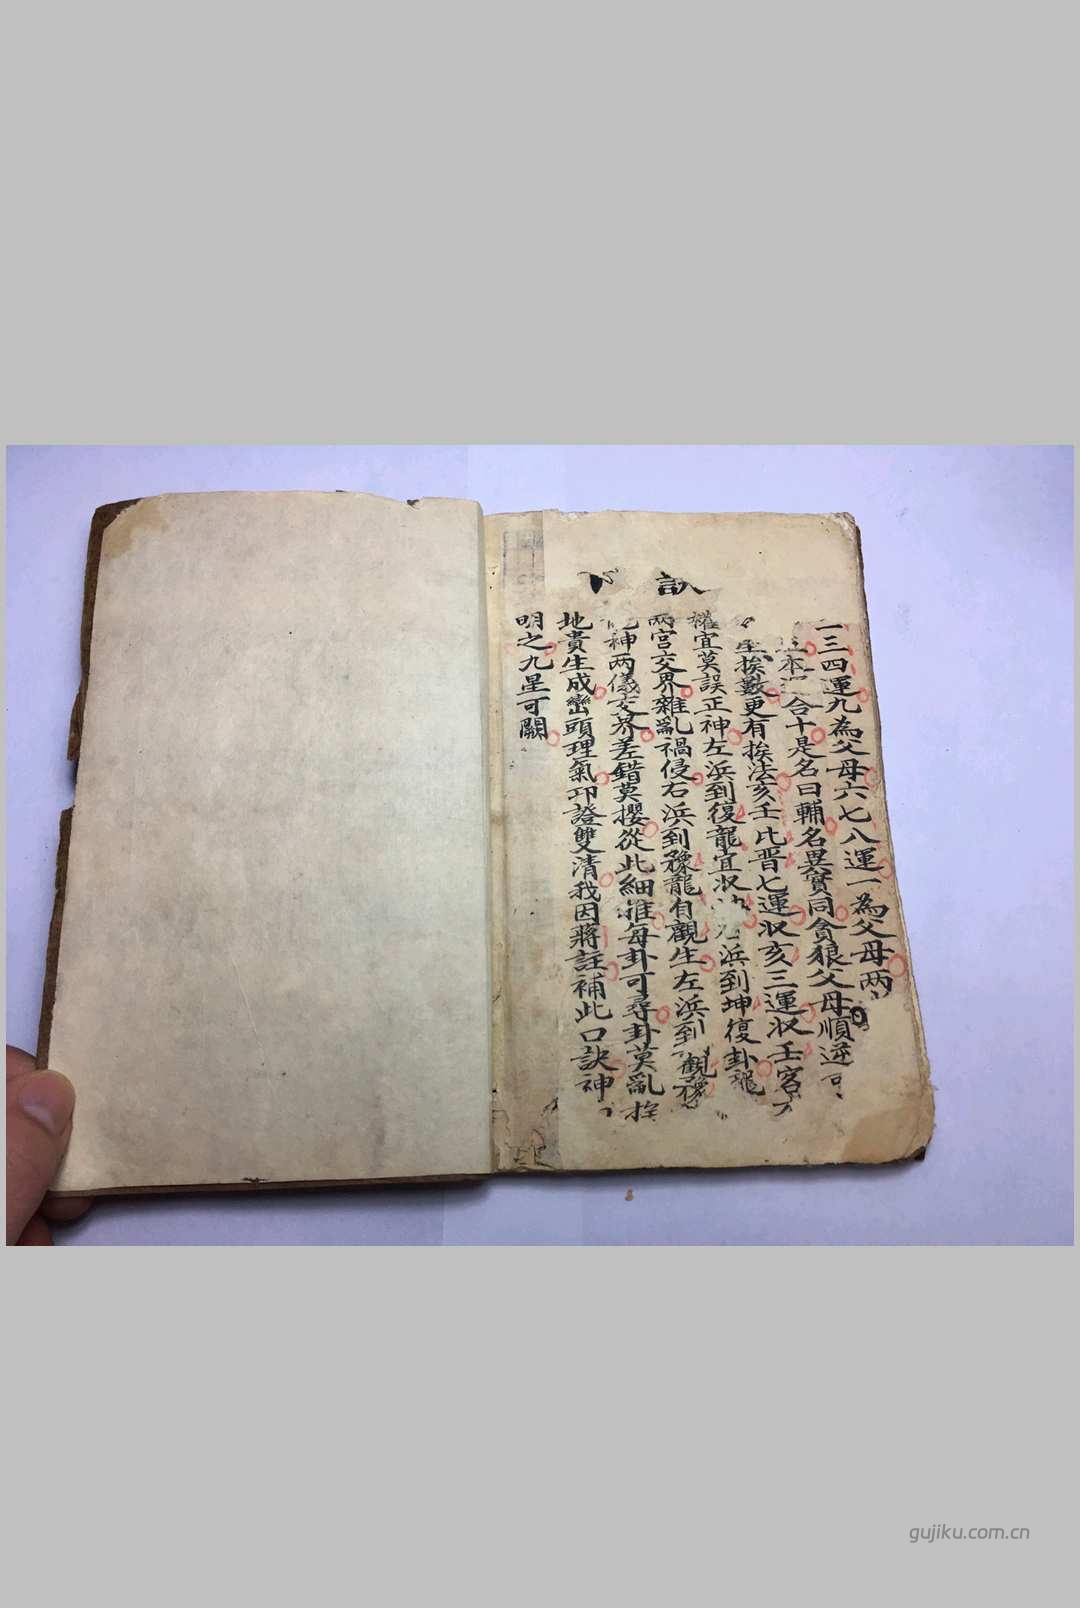 訣
二三四運九為父母六七八運一為父母兩
本 合十是名曰輔名異實同貪狼父母順逆
星挨數更有挨法亥壬比晋七運収亥三運収壬宮
權宜莫誤正神左浜到復龍宜収 浜到坤復卦龍
兩宮交界雜亂禍侵右浜到豫龍有觀生左浜到 觀豫
神兩儀交界差錯莫攖從此細推每卦可尋卦莫亂挨
地貴生成巒頭理氣印證雙清我因蔣註補此口訣神
明之九星可闢
gujiku.com.cn